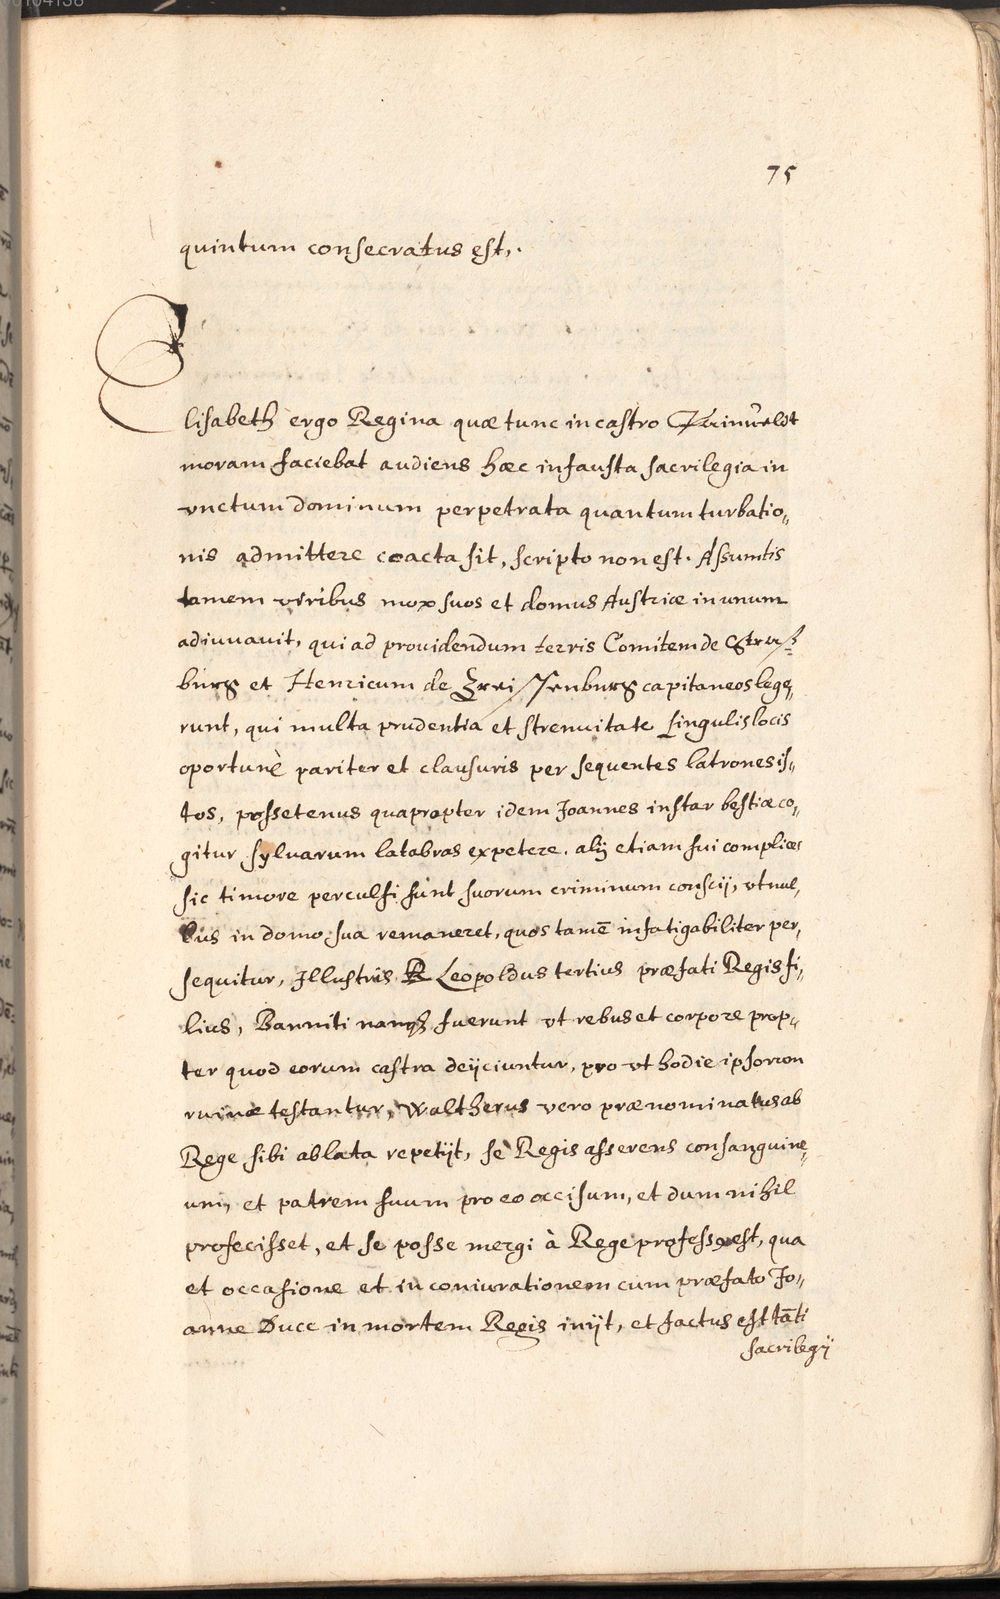 75
quintum consecratus est,.
Elisabeth ergo Regina quæ tunc in castro Rainveldt
moram faciebat audiens hæc infausta sacrilegia in
vnctum dominum perpetrata quantum turbatio„
nis admittere coacta sit, scripto non est. Assumtis
tamem viribus mox suos et domus Austriæ in unum
adiuuauit, qui ad prouidendum terris Comitem de Straß„
burg et Henricum de Frei Isenburg capitaneos lege„
runt, qui multa prudentia et strenuitate singulis locis
oportunè pariter et clausuris per sequentes latrones is„
tos, possetenus quapropter idem Joannes instar bestiæ co„
gitur syluarum latabras expetere. alij etiam sui complices
sic timore perculsi sunt suorum criminum conscij, vt nul„
lus in domo sua remaneret, quos tamē infatigabiliter per„
sequitur, Illustris R Leopoldus tertius præfati Regis fi„
lius, Banniti namq3 fuerunt vt rebus et corpore prop„
ter quod eorum castra deijciuntur, pro vt hodie ipsorum
ruinæ testantur, Waltherus vero prænominatus ab
Rege sibi ablata repetijt, se Regis asserens consanguine„
um, et patrem suum pro eo occisum, et dum nihil
profecisset, et se posse mergi à Rege professus est, qua
et occasione et in coniurationem cum præfato Jo„
anne Duce in mortem Regis inijt, et factus est tāti
sacrilegij